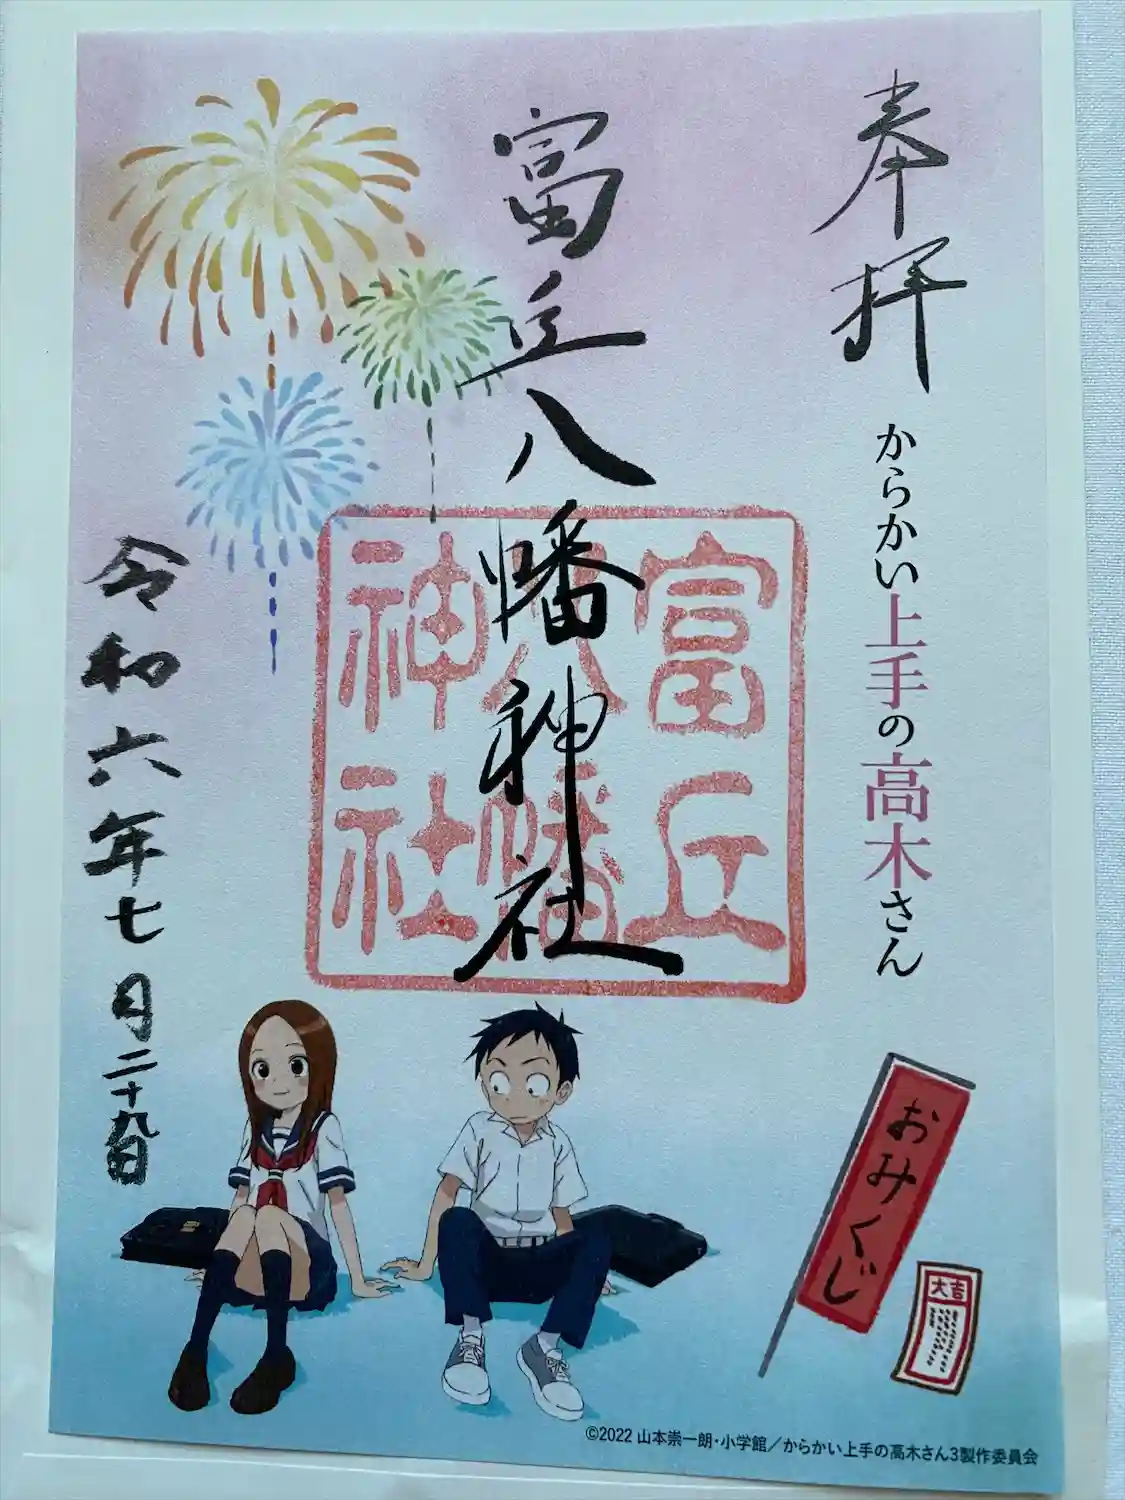 奉拝
からかい上手の高木さん
富丘八幡神社
富丘
八幡
神社
令和六年七月二十九日
おみくじ
大吉
©2022 山本崇一朗・小学館／からかい上手の高木さん3製作委員会